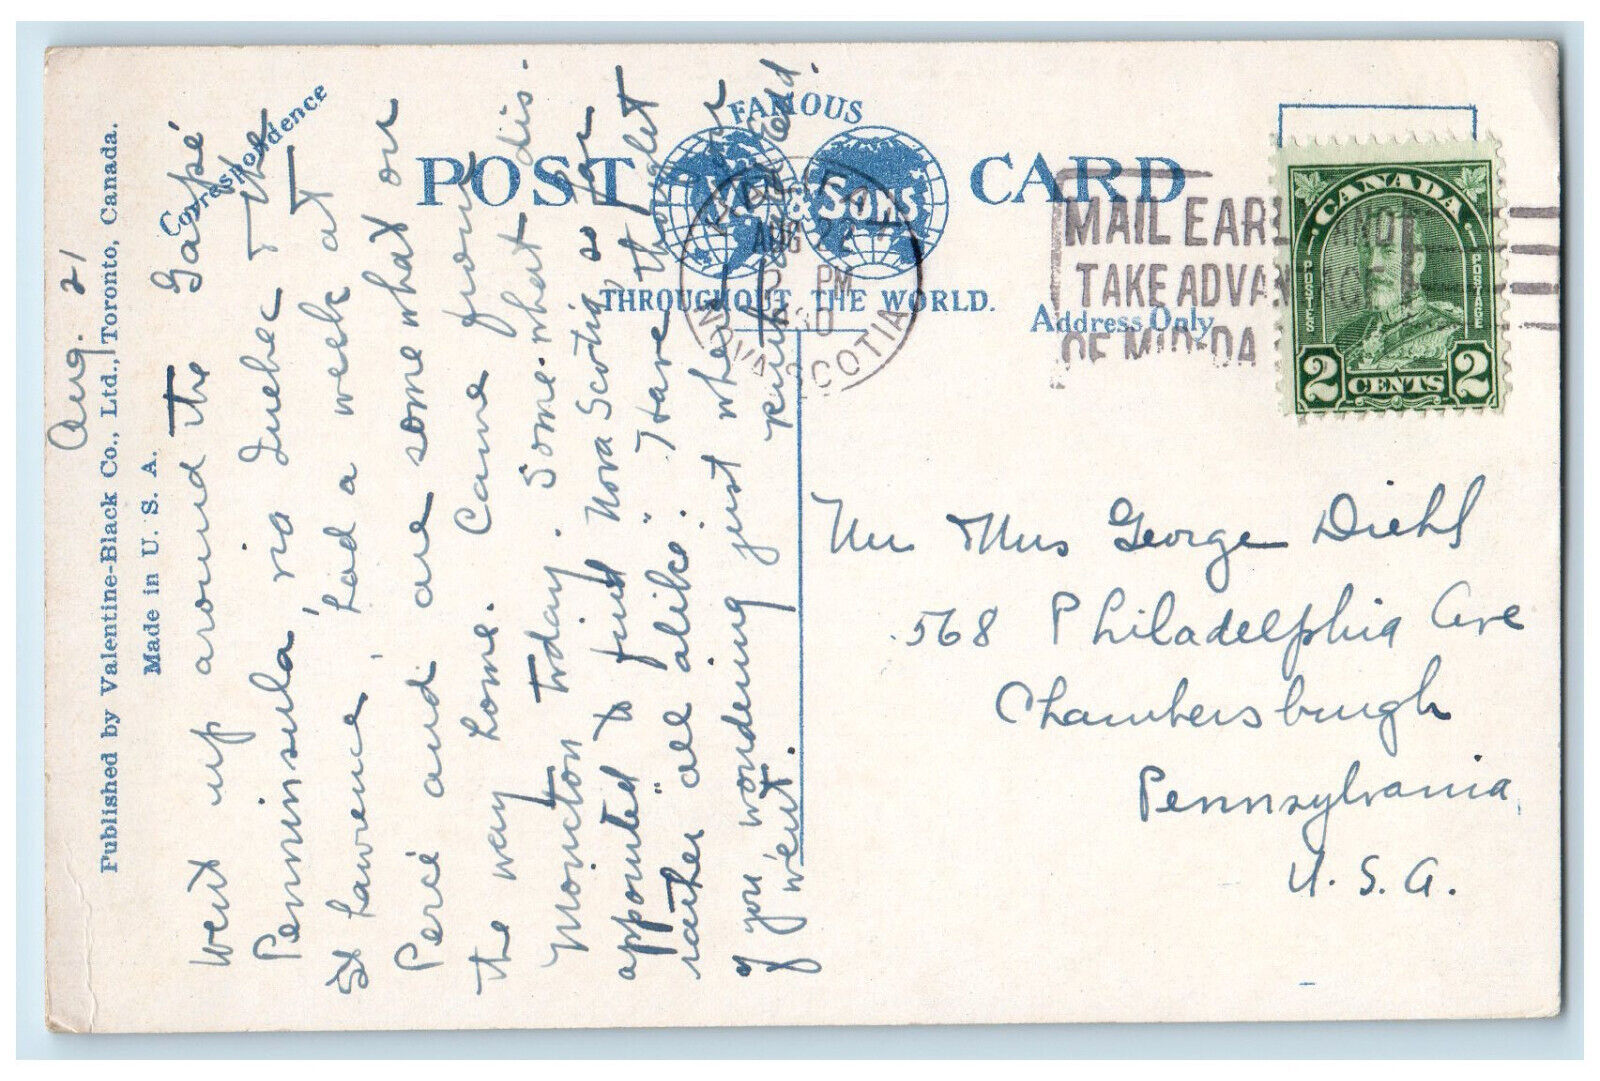 Aug. 21
Went up around the Gaspé
Penninsula, via Quebec & the
St Lawrence, had a week at
Percé and are somewhat on
the way home. Came from
Moncton today. Somewhat dis-
appointed to find Nova Scotia so far
rather "all alike." Have thought
of you wondering just where
you went.
Correspondence
Published by Valentine-Black Co., Ltd., Toronto, Canada.
Made in U. S. A.
POST CARD
FAMOUS
& Sons
THROUGHOUT THE WORLD.
Address Only
AUG 22
PM
NOVA SCOTIA
MAIL EARLY AND
TAKE ADVANTAGE
OF MID-DA
CANADA
POSTES
POSTAGE
2 CENTS 2
Mr Mrs George Diehl
568 Philadelphia Ave
Chambersburgh
Pennsylvania,
U. S. A.